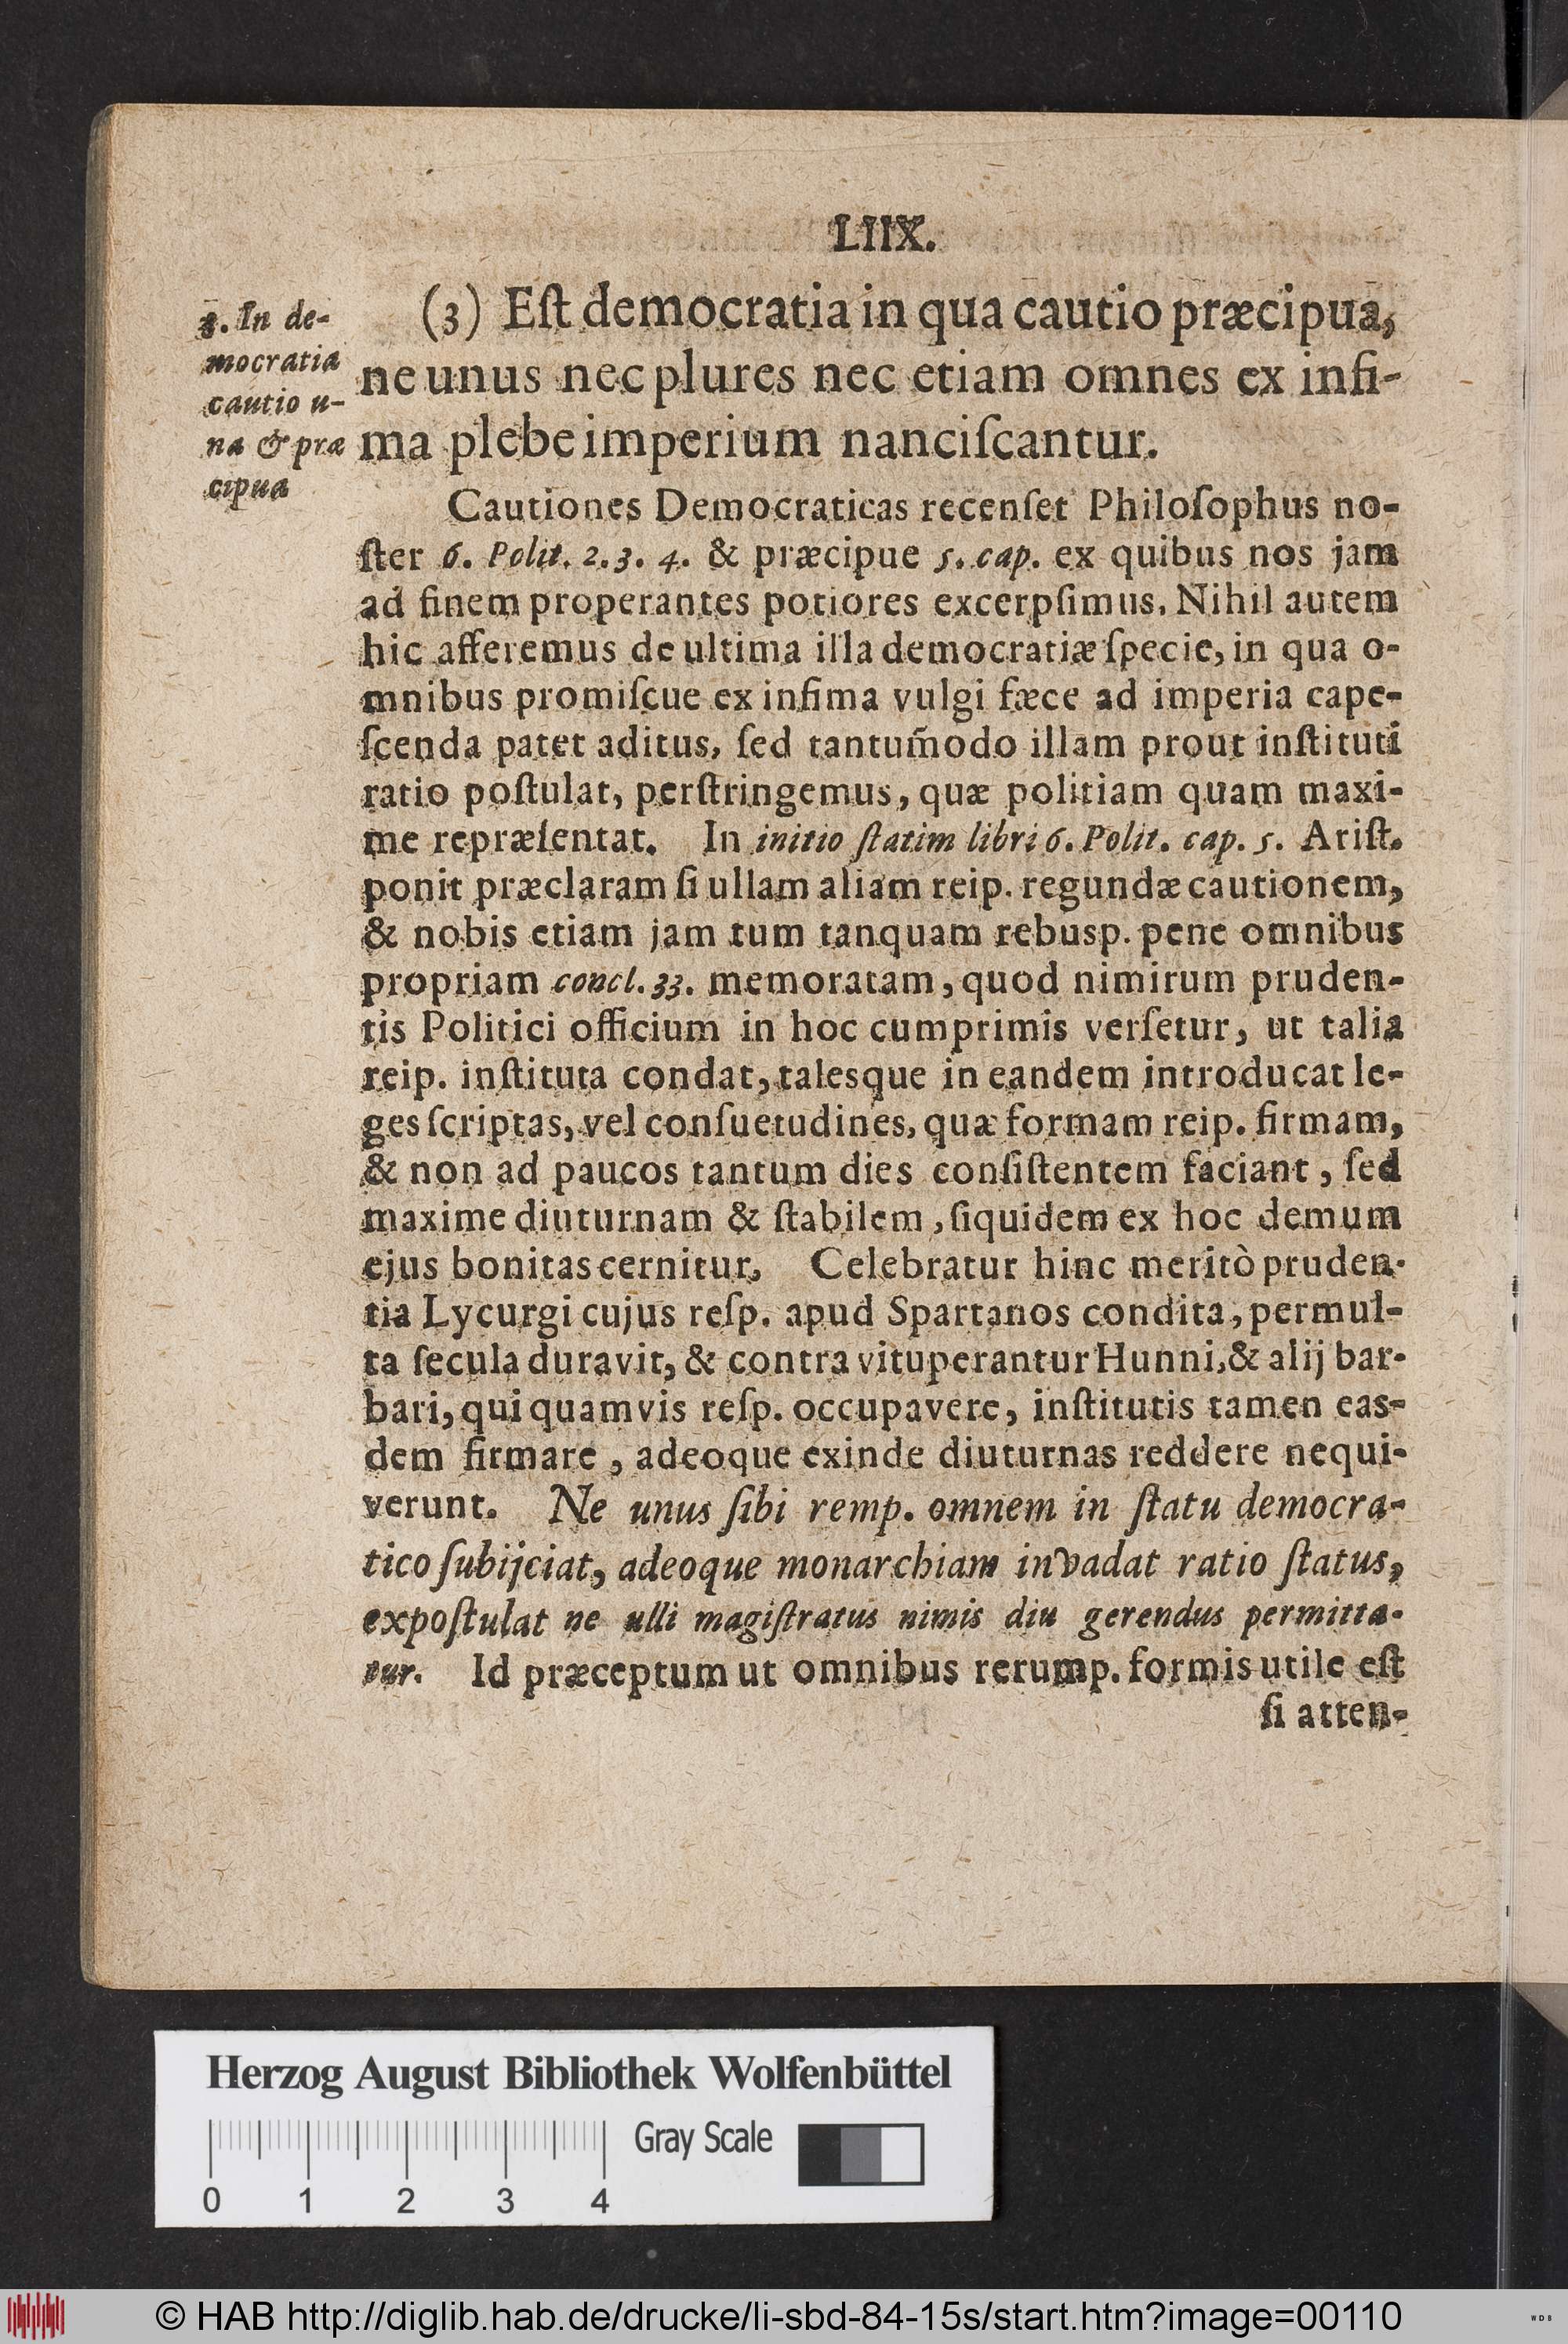 LIIX.
3. In de-
mocratia
cautio u-
na & præ
cipua
(3) Eſt democratia in qua cautio præcipua,
ne unus nec plures nec etiam omnes ex infi-
ma plebe imperium nanciſcantur.
Cautiones Democraticas recenſet Philoſophus no-
ſter 6. Polit. 2.3. 4. & præcipue 5. cap. ex quibus nos jam
ad finem properantes potiores excerpſimus. Nihil autem
hic afferemus de ultima illa democratiæ ſpecie, in qua o-
mnibus promiſcue ex infima vulgi fæce ad imperia cape-
ſcenda patet aditus, ſed tantum̃odo illam prout inſtituti
ratio poſtulat, perſtringemus, quæ politiam quam maxi-
me repræſentat. In initio ſtatim libri 6. Polit. cap. 5. Ariſt.
ponit præclaram ſi ullam aliam reip. regundæ cautionem,
& nobis etiam jam tum tanquam rebusp. pene omnibus
propriam concl. 33. memoratam, quod nimirum pruden-
tis Politici officium in hoc cumprimis verſetur, ut talia
reip. inſtituta condat, talesque in eandem introducat le-
ges ſcriptas, vel conſuetudines, quæ formam reip. firmam,
& non ad paucos tantum dies conſiſtentem faciant, ſed
maxime diuturnam & ſtabilem, ſiquidem ex hoc demum
ejus bonitas cernitur. Celebratur hinc meritò pruden-
tia Lycurgi cujus reſp. apud Spartanos condita, permul-
ta ſecula duravit, & contra vituperantur Hunni, & alij bar-
bari, qui quamvis reſp. occupavere, inſtitutis tamen eas-
dem firmare, adeoque exinde diuturnas reddere nequi-
verunt. Ne unus ſibi remp. omnem in ſtatu democra-
tico ſubijciat, adeoque monarchiam invadat ratio ſtatus,
expoſtulat ne ulli magiſtratus nimis diu gerendus permitta-
tur. Id præceptum ut omnibus rerump. formis utile eſt
ſi atten-
Herzog August Bibliothek Wolfenbüttel
Gray Scale
0 1 2 3 4
© HAB http://diglib.hab.de/drucke/li-sbd-84-15s/start.htm?image=00110
WDB